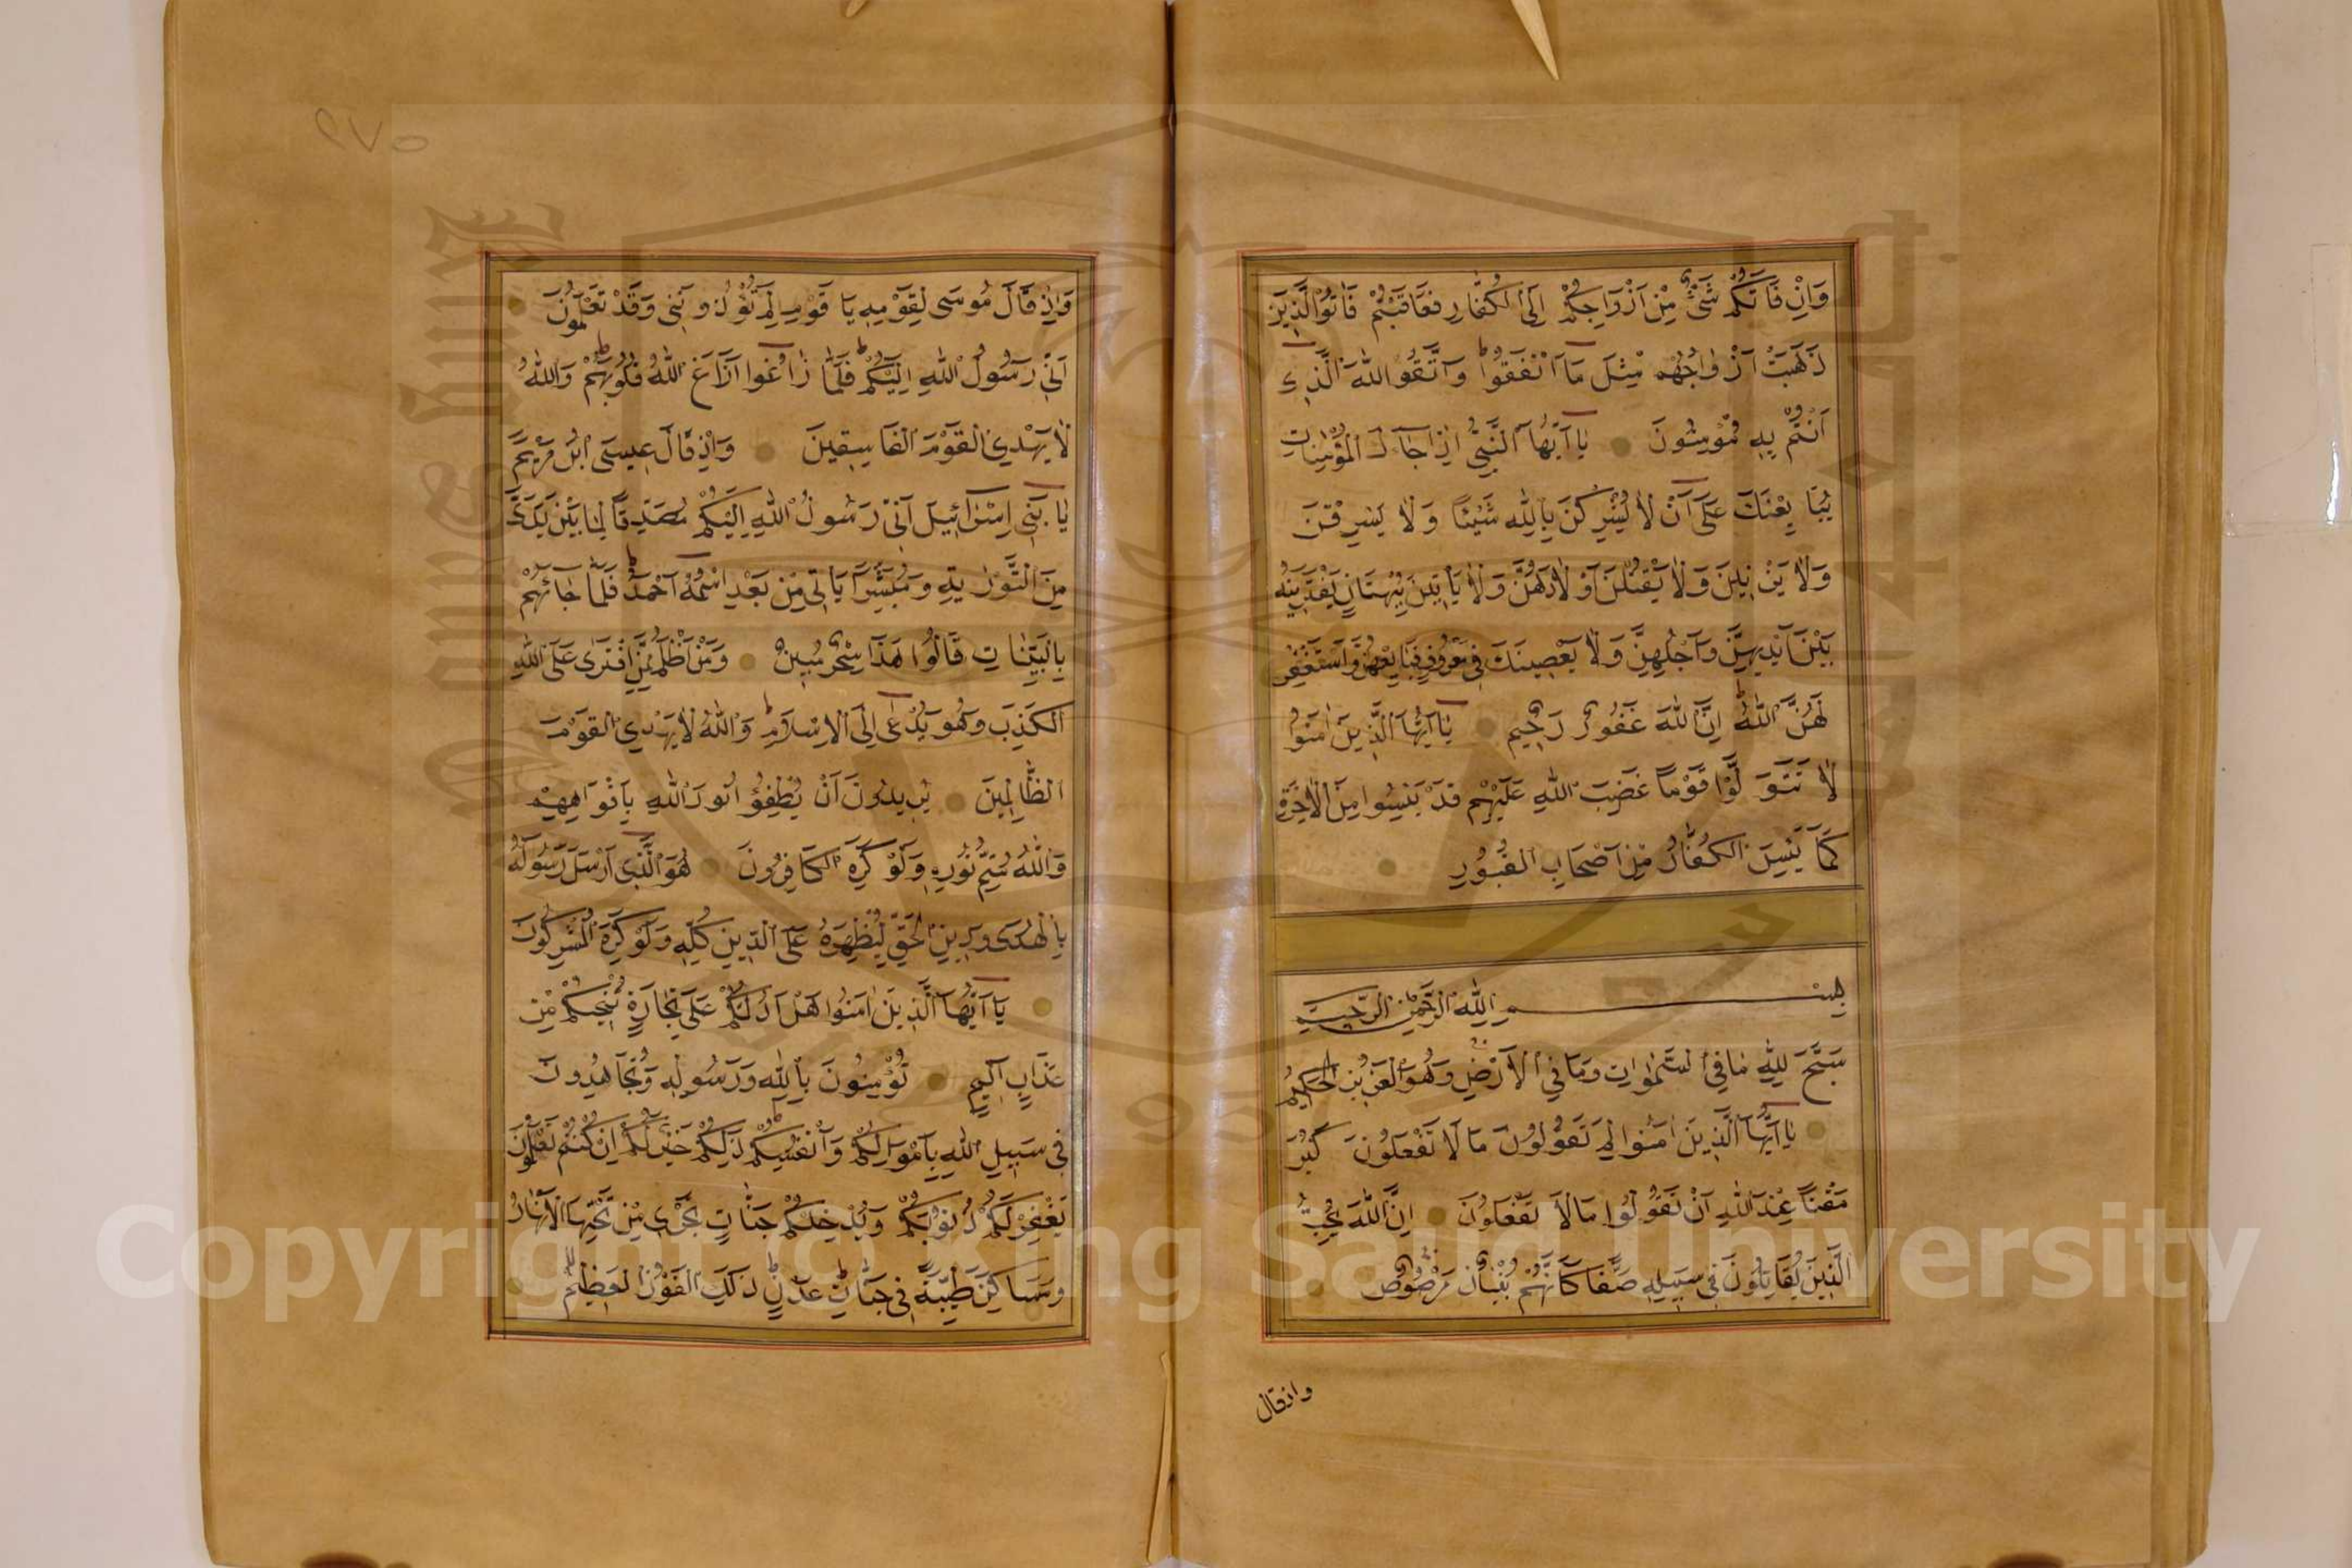 وَاِنْ فَاتَكُمْ شَیْءٌ مِنْ اَزْوَاجِكُمْ اِلَى الْكُفَّارِ فَعَاقَبْتُمْ فَاٰتُوا الَّذِيَن
ذَهَبَتْ اَزْوَاجُهُمْ مِثْلَ مَا اَنْفَقُوا وَاتَّقُوا اللهَ الَّذِي
اَنْتُمْ بِهِ مُؤْمِنُونَ يَا اَيُّهَا النَّبِيُّ اِذَا جَآءَكَ الْمُؤْمِنَاتُ
يُبَايِعْنَكَ عَلَى اَنْ لَا يُشْرِكْنَ بِاللهِ شَيْئًا وَلَا يَسْرِقْنَ
وَلَا يَزْنِينَ وَلَا يَقْتُلْنَ اَوْلَادَهُنَّ وَلَا يَاْتِينَ بِبُهْتَانٍ يَفْتَرِينَهُ
بَيْنَ اَيْدِيهِنَّ وَاَرْجُلِهِنَّ وَلَا يَعْصِينَكَ فِي مَعْرُوفٍ فَبَايِعْهُنَّ وَاسْتَغْفِرْ
لَهُنَّ اللهَ اِنَّ اللهَ غَفُورٌ رَحِيمٌ يَا اَيُّهَا الَّذِينَ اٰمَنُوا
لَا تَتَوَلَّوْا قَوْمًا غَضِبَ اللهُ عَلَيْهِمْ قَدْ يَئِسُوا مِنَ الْاٰخِرَةِ
كَمَا يَئِسَ الْكُفَّارُ مِنْ اَصْحَابِ الْقُبُورِ
بِسْمِ اللهِ الرَّحْمٰنِ الرَّحِيمِ
سَبَّحَ لِلّٰهِ مَا فِي السَّمٰوَاتِ وَمَا فِي الْاَرْضِ وَهُوَ الْعَزِيزُ الْحَكِيمُ
يَا اَيُّهَا الَّذِينَ اٰمَنُوا لِمَ تَقُولُونَ مَا لَا تَفْعَلُونَ كَبُرَ
مَقْتًا عِنْدَ اللهِ اَنْ تَقُولُوا مَا لَا تَفْعَلُونَ اِنَّ اللهَ يُحِبُّ
الَّذِينَ يُقَاتِلُونَ فِي سَبِيلِهِ صَفًّا كَاَنَّهُمْ بُنْيَانٌ مَرْصُوصٌ
واذقال
٢٧٥
وَاِذْ قَالَ مُوسَى لِقَوْمِهِ يَا قَوْمِ لِمَ تُؤْذُونَنِي وَقَدْ تَعْلَمُونَ
اَنِّي رَسُولُ اللهِ اِلَيْكُمْ فَلَمَّا زَاغُوا اَزَاغَ اللهُ قُلُوبَهُمْ وَاللهُ
لَا يَهْدِي الْقَوْمَ الْفَاسِقِينَ وَاِذْ قَالَ عِيسَى ابْنُ مَرْيَمَ
يَا بَنِي اِسْرَآئِيلَ اِنِّي رَسُولُ اللهِ اِلَيْكُمْ مُصَدِّقًا لِمَا بَيْنَ يَدَيَّ
مِنَ التَّوْرٰيةِ وَمُبَشِّرًا يَاْتِي مِنْ بَعْدِي اسْمُهُ اَحْمَدُ فَلَمَّا جَائَهُمْ
بِالْبَيِّنَاتِ قَالُوا هَذَا سِحْرٌ مُبِينٌ وَمَنْ اَظْلَمُ مِمَّنِ افْتَرَى عَلَى اللهِ
الْكَذِبَ وَهُوَ يُدْعَى اِلَى الْاِسْلَامِ وَاللهُ لَا يَهْدِي الْقَوْمَ
الظَّالِمِينَ يُرِيدُونَ اَنْ يُطْفِؤُا نُورَ اللهِ بِاَفْوَاهِهِمْ
وَاللهُ مُتِمُّ نُورِهِ وَلَوْ كَرِهَ الْكَافِرُونَ هُوَ الَّذِي اَرْسَلَ رَسُولَهُ
بِالْهُدَى وَدِينِ الْحَقِّ لِيُظْهِرَهُ عَلَى الدِّينِ كُلِّهِ وَلَوْ كَرِهَ الْمُشْرِكُونَ
يَا اَيُّهَا الَّذِينَ اٰمَنُوا هَلْ اَدُلُّكُمْ عَلَى تِجَارَةٍ تُنْجِيكُمْ مِنْ
عَذَابٍ اَلِيمٍ تُؤْمِنُونَ بِاللهِ وَرَسُولِهِ وَتُجَاهِدُونَ
فِي سَبِيلِ اللهِ بِاَمْوَالِكُمْ وَاَنْفُسِكُمْ ذَلِكُمْ خَيْرٌ لَكُمْ اِنْ كُنْتُمْ تَعْلَمُونَ
يَغْفِرْ لَكُمْ ذُنُوبَكُمْ وَيُدْخِلْكُمْ جَنَّاتٍ تَجْرِي مِنْ تَحْتِهَا الْاَنْهَارُ
وَمَسَاكِنَ طَيِّبَةً فِي جَنَّاتِ عَدْنٍ ذَلِكَ الْفَوْزُ الْعَظِيمُ
Copyright © King Saud University